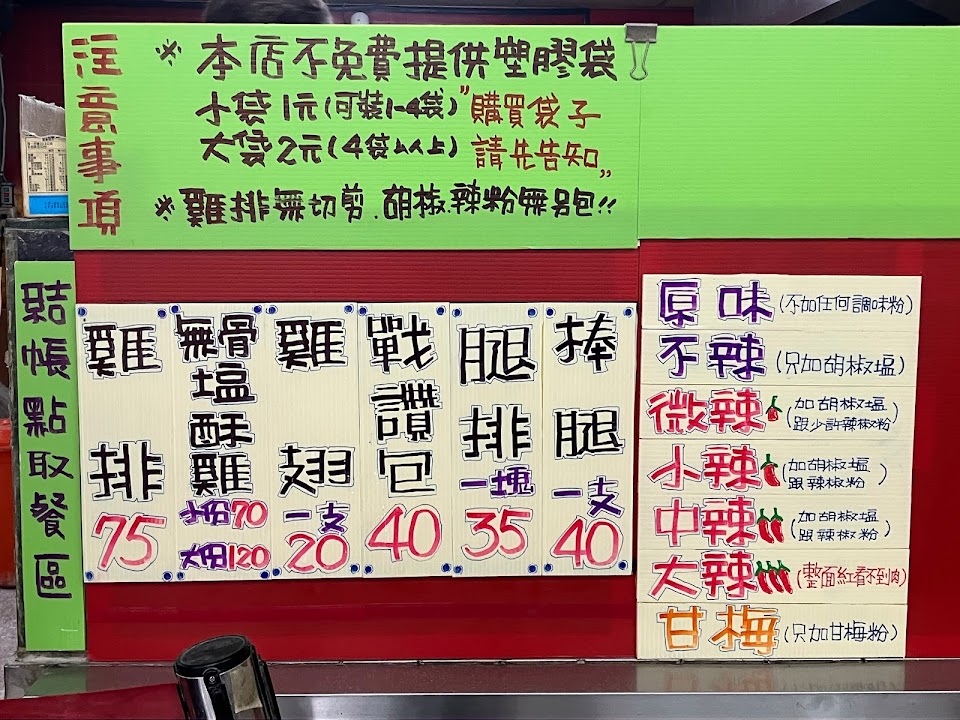 注意事項
※ 本店不免費提供塑膠袋
小袋1元(可裝1-4袋)
大袋2元(4袋以上)
"購買袋子
請先告知"
※ 雞排無切剪.胡椒.辣粉無另包!!
結帳點取餐區
雞排
75
無骨塩酥雞
小份70
大份120
雞翅
一支
20
戰讚包
40
腿排
一塊
35
棒腿
一支
40
原味(不加任何調味粉)
不辣(只加胡椒塩)
微辣(加胡椒塩
跟少許辣椒粉)
小辣(加胡椒塩
跟辣椒粉)
中辣(加胡椒塩
跟辣椒粉)
大辣(整面紅看不到肉)
甘梅(只加甘梅粉)